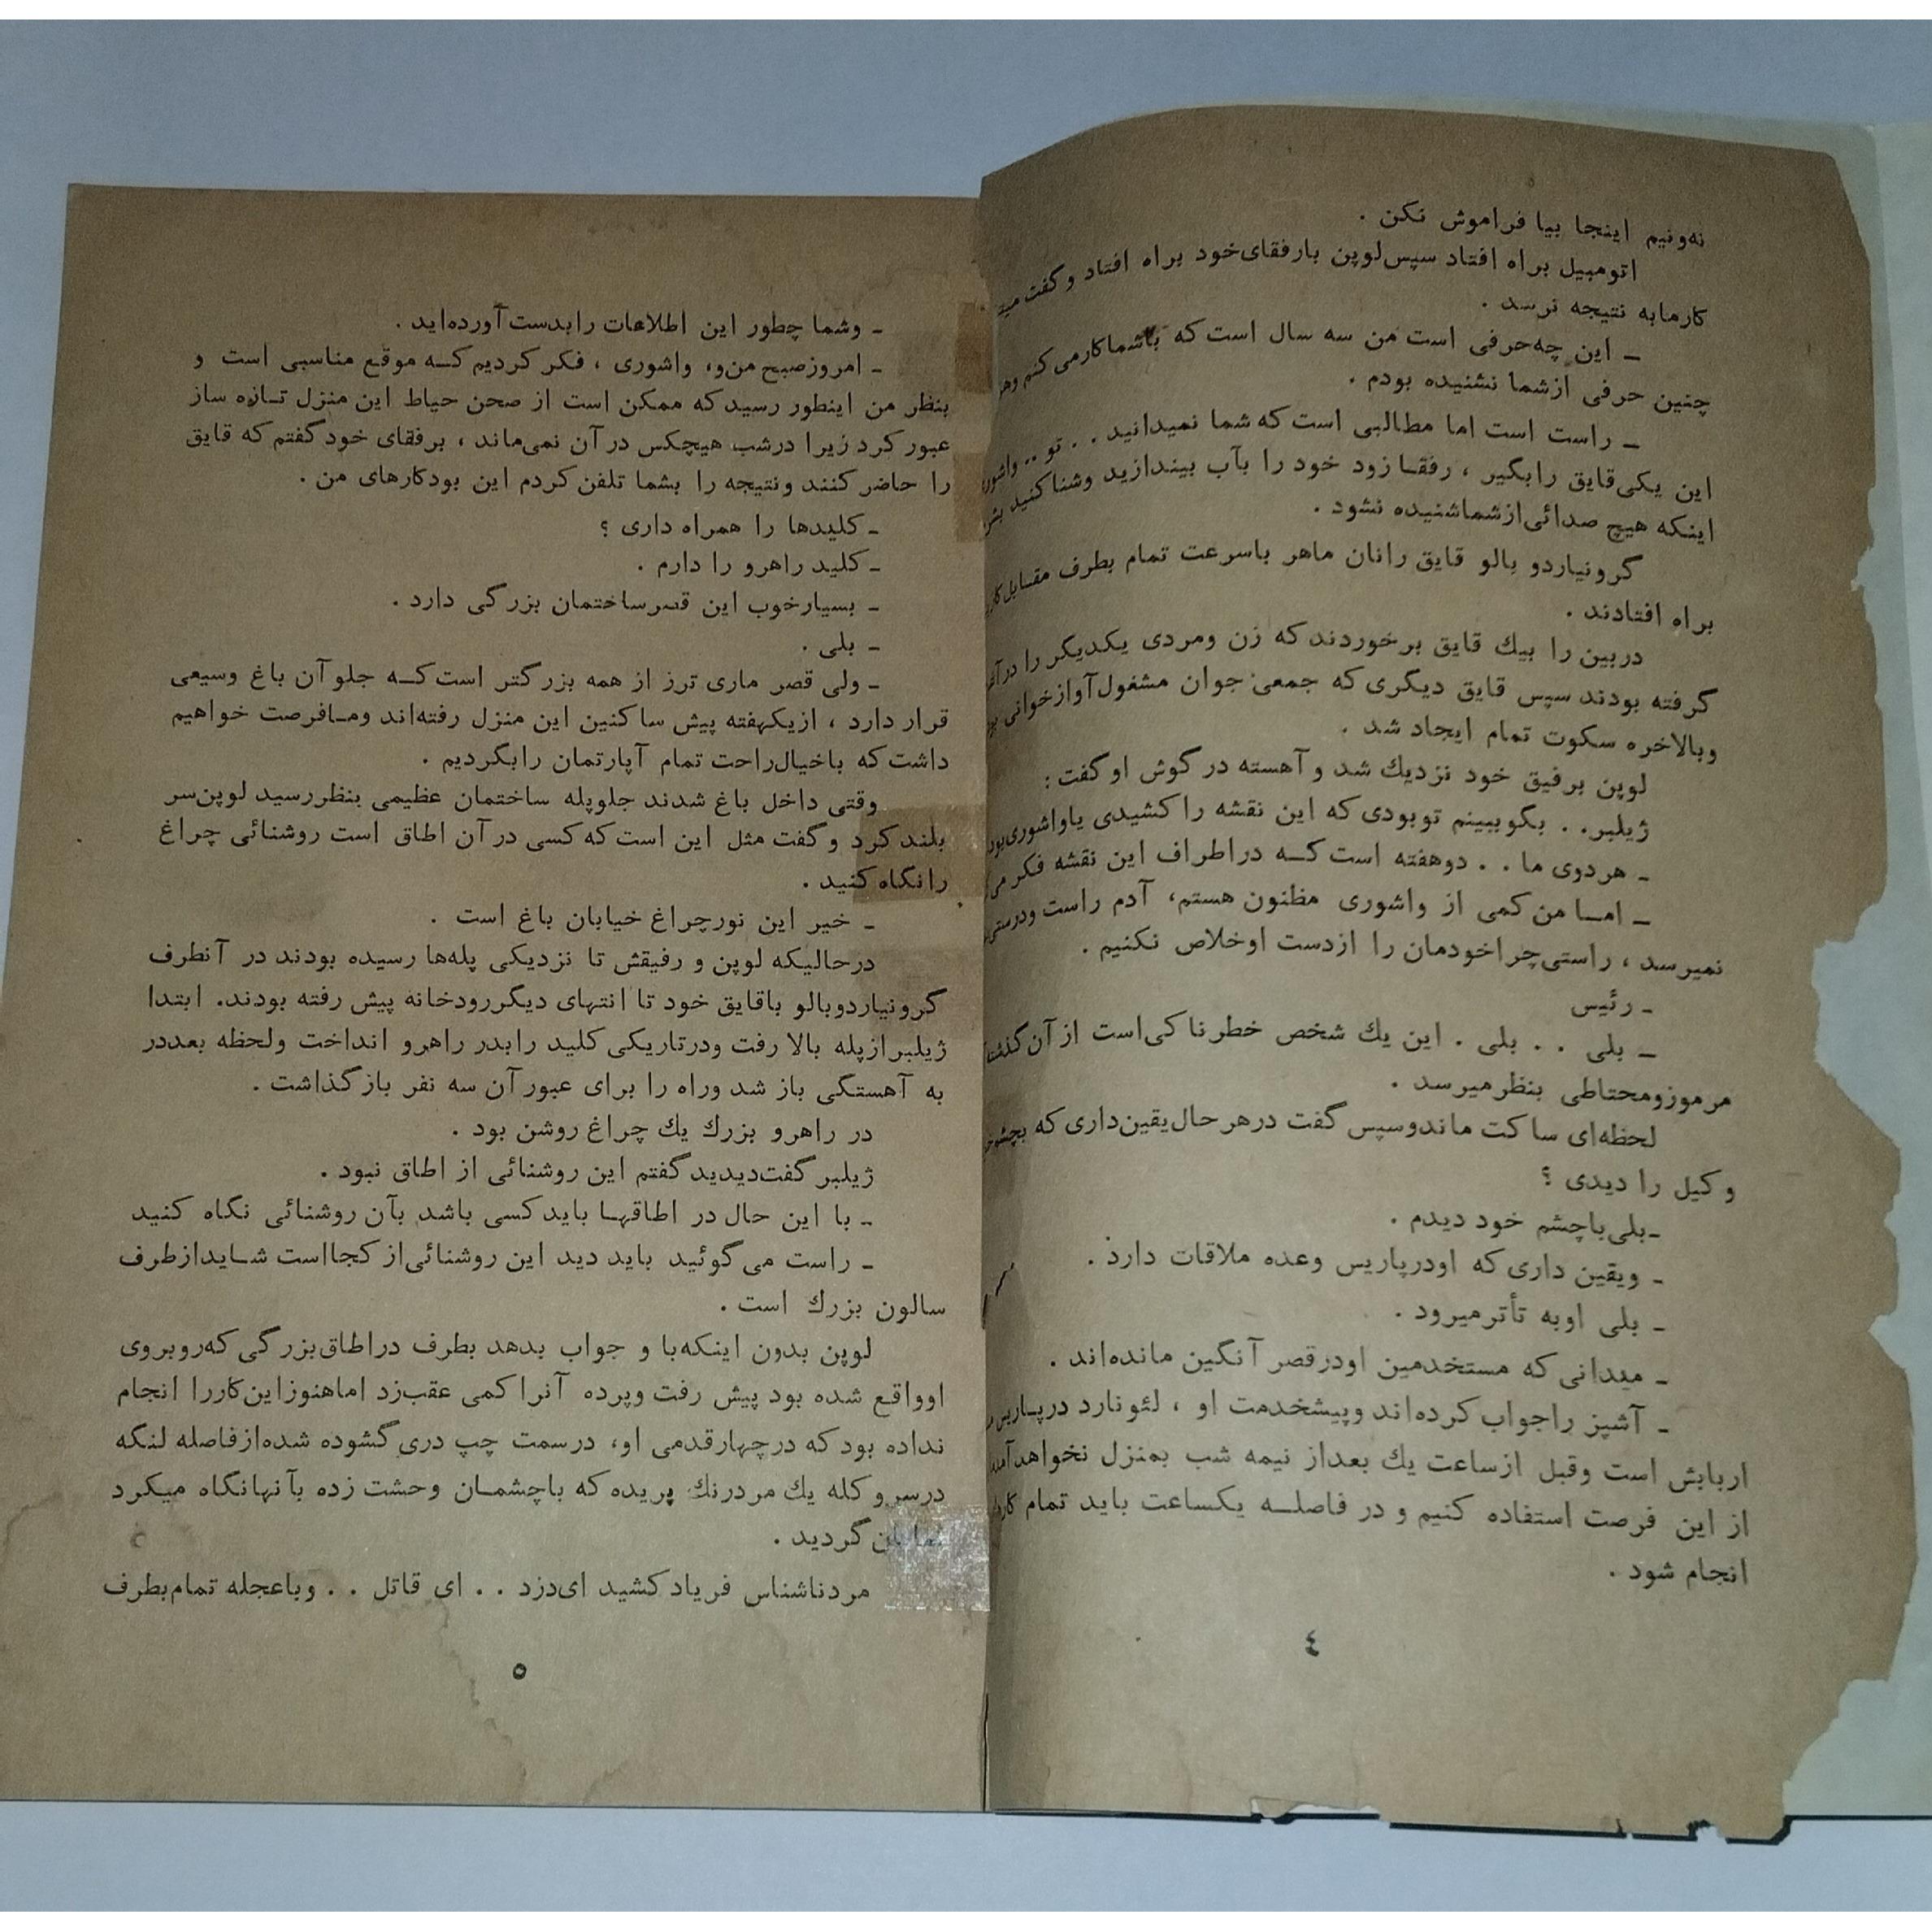 نه‌ونیم اینجا بیا فراموش نکن .
اتومبیل براه افتاد سپس‌لوپن بارفقای‌خود براه افتاد و گفت
کارمابه نتیجه نرسد .
ـ این چه‌حرفی است من سه سال است که باشماکارمی‌کنم
چنین حرفی ازشما نشنیده بودم .
ـ راست است اما مطالبی است که شما نمیدانید . . تو . .
این یکی‌قایق رابگیر ، رفقـا زود خود را بآب بیندازید وشناکنید
اینکه هیچ صدائی‌ازشماشنیده نشود .
گرونیاردو بالو قایق رانان ماهر باسرعت تمام بطرف مقـابل
براه افتادند .
دربین را بیك قایق برخوردند که زن ومردی یکدیگر را
گرفته بودند سپس قایق دیگری که جمعی جوان مشغول‌آوازخوانی
وبالاخره سکوت تمام ایجاد شد .
لوپن برفیق خود نزدیك شد و آهسته در گوش او گفت :
ژیلبر. . بگوببینم توبودی که این نقشه را کشیدی یاواشوری
ـ هردوی ما . . دوهفته است کـه دراطراف این نقشه فکر
ـ امـا من کمی از واشوری مظنون هستم، آدم راست
نمیرسد ، راستی‌چراخودمان را ازدست اوخلاص نکنیم .
ـ رئیس
ـ بلی . . بلی . این یك شخص خطرناکی‌است از آن
مرموزومحتاطی بنظرمیرسد .
لحظه‌ای ساکت ماندوسپس گفت درهرحال‌یقین‌داری که
وکیل را دیدی ؟
ـ بلی‌باچشم خود دیدم .
ـ ویقین داری که اودرپاریس وعده ملاقات دارد .
ـ بلی اوبه تأترمیرود .
ـ میدانی که مستخدمین اودرقصر آنگین مانده‌اند .
ـ آشپز راجواب کرده‌اند وپیشخدمت او ، لئونارد درپـاریس
اربابش است وقبل ازساعت یك بعداز نیمه شب بمنزل نخواهدآمد
از این فرصت استفاده کنیم و در فاصلـه یکساعت باید تمام
انجام شود .
٤
ـ وشما چطور این اطلاعات رابدست‌آورده‌اید .
ـ امروزصبح من‌و، واشوری ، فکر کردیم کـه موقع مناسبی است و
بنظر من اینطور رسید که ممکن است از صحن حیاط این منزل تـازه ساز
عبور کرد زیرا درشب هیچکس در آن نمی‌ماند ، برفقای خود گفتم که قایق
را حاضر کنند ونتیجه را بشما تلفن کردم این بودکارهای من .
ـ کلیدها را همراه داری ؟
ـ کلید راهرو را دارم .
ـ بسیارخوب این قصرساختمان بزرگی دارد .
ـ بلی .
ـ ولی قصر ماری ترز از همه بزرگتر است کـه جلو آن باغ وسیعی
قرار دارد ، ازیکهفته پیش ساکنین این منزل رفته‌اند ومـافرصت خواهیم
داشت که باخیال‌راحت تمام آپارتمان رابگردیم .
وقتی داخل باغ شدند جلوپله ساختمان عظیمی بنظررسید لوپن‌سر
بلند کرد و گفت مثل این است که کسی در آن اطاق است روشنائی چراغ
رانگاه کنید .
ـ خیر این نورچراغ خیابان باغ است .
درحالیکه لوپن و رفیقش تا نزدیکی پله‌ها رسیده بودند در آنطرف
گرونیاردوبالو باقایق خود تا انتهای دیگررودخانه پیش رفته بودند. ابتدا
ژیلبرازپله بالا رفت ودرتاریکی کلید رابدر راهرو انداخت ولحظه بعددر
به آهستگی باز شد وراه را برای عبور آن سه نفر بازگذاشت .
در راهرو بزرك یك چراغ روشن بود .
ژیلبر گفت‌دیدید گفتم این روشنائی از اطاق نبود .
ـ با این حال در اطاقهـا باید کسی باشد بآن روشنائی نگاه کنید
ـ راست می گوئید باید دید این روشنائی‌از کجااست شـایدازطرف
سالون بزرك است .
لوپن بدون اینکه‌با و جواب بدهد بطرف دراطاق‌بزرگی که‌روبروی
اوواقع شده بود پیش رفت وپرده آنرا کمی عقب‌زد اماهنوزاین‌کاررا انجام
نداده بود که درچهارقدمی او، درسمت چپ دری گشوده شده‌ازفاصله لنگه
درسر و کله یك مردرنك پریده که باچشمـان وحشت زده بآنهانگاه میکرد
نمایان گردید .
مردناشناس فریاد کشید ای‌دزد . . ای قاتل . . وباعجله تمام‌بطرف
٥